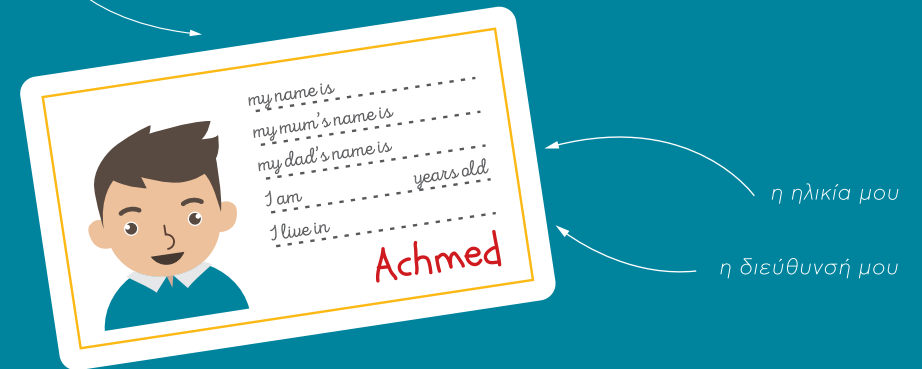 my name is
my mum's name is
my dad's name is
I am years old
I live in
Achmed
η ηλικία μου
η διεύθυνσή μου